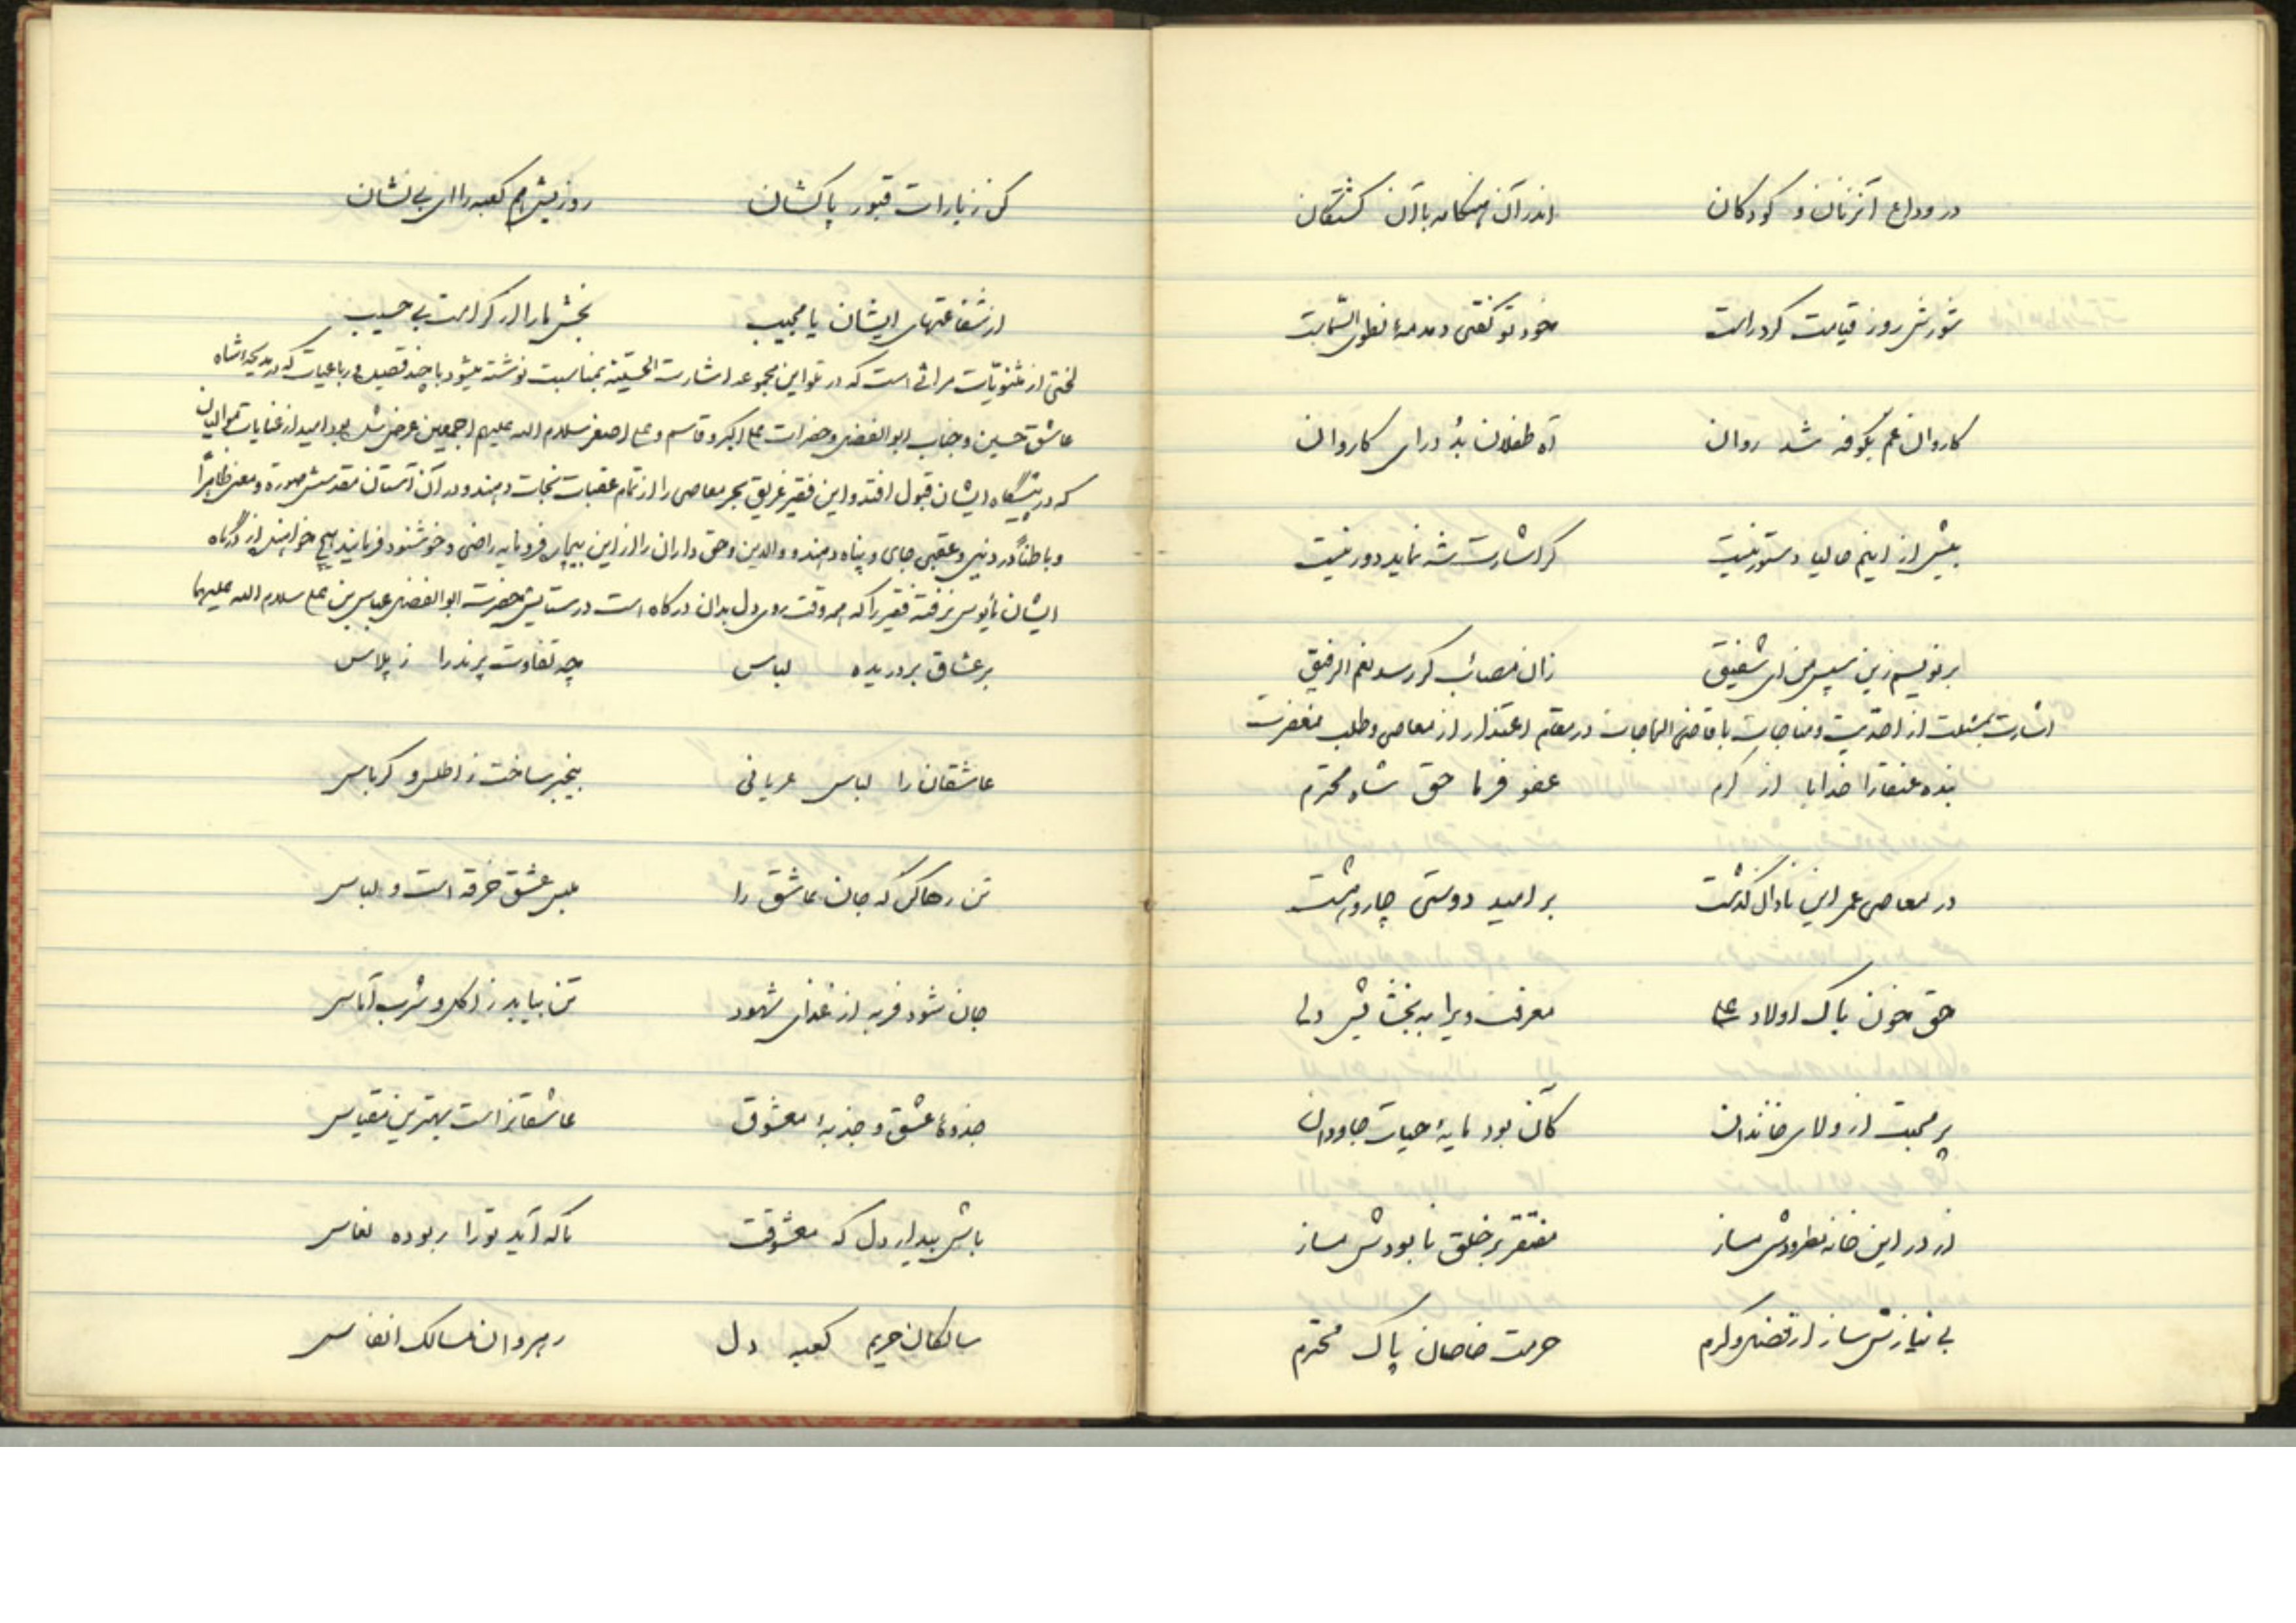 در وداع آنزنان و کودکان اندر آن هنگامه با آن کشتگان
شورش روز قیامت کرد راست خود تو گفتی دمدمهٔ
کاروان غم بکوفه شد روان آه طفلان بُد درای کاروان
بیش از اینم حالیا دستور نیست گر اشارت شه نماید دور نیست
برنویسم زین سپس من ای شفیق زان مصائب گر رسد نعم الرفیق
اشارت بمسئلت از احدیت و مناجات با قاضی الحاجات در مقام اعتذار از معاصی و طلب مغفرت
بنده عنقا را خدایا از کرم عفو فرما حق شاه محترم
در معاصی عمر این نادان گذشت بر امید دوستی چار و هشت
حق خون پاک اولاد علی معرفت ویرا به بخشایش دلی
پر محبت از ولای خاندان کآن بود مایهٔ حیات جاودان
از در این خانه مطرودش مساز مفتقر بر خلق نابودش مساز
بی نیازش ساز از فضل و کرم حرمت خاصان پاک محترم
کن زیارات قبور پاکشان روزیش هم کعبه را ای بی نشان
از شفاعتهای ایشان یا مجیب بخش ما را از کرامت بی حسیب
لختی از مثنویّات مراثی است که در تلو این مجموعه اشارت الحسینیه بمناسبت نوشته میشود با چند قصیده و رباعیات که در مدیحه شاه
عاشق حسین و جناب ابوالفضل و حضرات علی اکبر و قاسم و علی اصغر سلام الله علیهم اجمعین عرض شده بود امید از عنایات موالیان
که در پیشگاه ایشان قبول افتد و این فقیر غریق بحر معاصی را از تمام عقبات نجات دهند و در آن آستان مقدسش صورة و معنی ظاهراً
و باطناً در دنیی و عقبی جای و پناه دهند و والدین و حق داران را از این بیچاره فرومایه راضی و خوشنود فرمایند هیچ خواهنده از درگاه
ایشان مأیوس نرفته فقیر را که همه وقت روی دل بدان درگاه است در ستایش حضرت ابوالفضل عباس بن علی سلام الله علیهما
بر عشاق بردریده لباس چه تفاوت پرند را ز پلاس
عاشقان را لباس عریانی بیخبر ساخت ز اطلس و کرباس
تن رها کن که جان عاشق را ملبس عشق خرقه است و لباس
جان شود فربه از غذای شهود تن بیابد ز اکل و شرب آماس
جذوهٔ عشق و جذبهٔ معشوق عاشقانرا است بهترین مقیاس
باش بیدار دل که معشوقت ناگه آید تو را ربوده نعاس
سالکان حریم کعبه دل رهروان مسالک انفاس